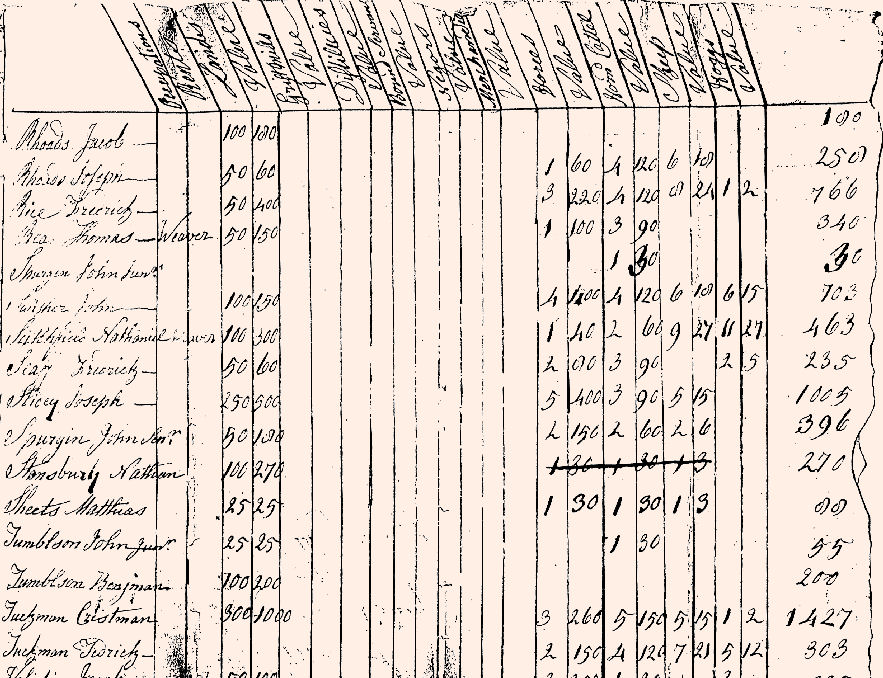 Occupations Lands Value Grist Mills Value Distilleries Value Value Negros Value Value Horses Value Horn Cattel Value Sheep Value Hoggs Value
Rhoads Jacob 100 180 180
Rhoads Joseph 50 60 1 60 4 120 6 18 258
Rice Fredrick 50 400 3 220 4 120 8 24 1 2 766
Rea Thomas Weaver 50 150 1 100 3 90 340
Spurgin John Junr 1 30 30
John 100 150 4 400 4 120 6 18 6 15 703
Nathaniel Weaver 100 300 1 40 2 60 9 27 11 27 463
Fredrick 50 60 2 80 3 90 2 5 235
Joseph 250 500 5 400 3 90 5 15 1005
Spurgin John Senr 50 180 2 150 2 60 2 6 396
Stonsbury Nathan 100 270 1 30 1 30 1 3 270
Sheets Matthias 25 25 1 30 1 30 1 3 88
Tumblson John Junr 25 25 1 30 55
Tumblson Benjman 100 200 200
Tuckman Cristman 300 1000 3 260 5 150 5 15 1 2 1427
Tuckman Fedrick 2 150 4 120 7 21 5 12 303